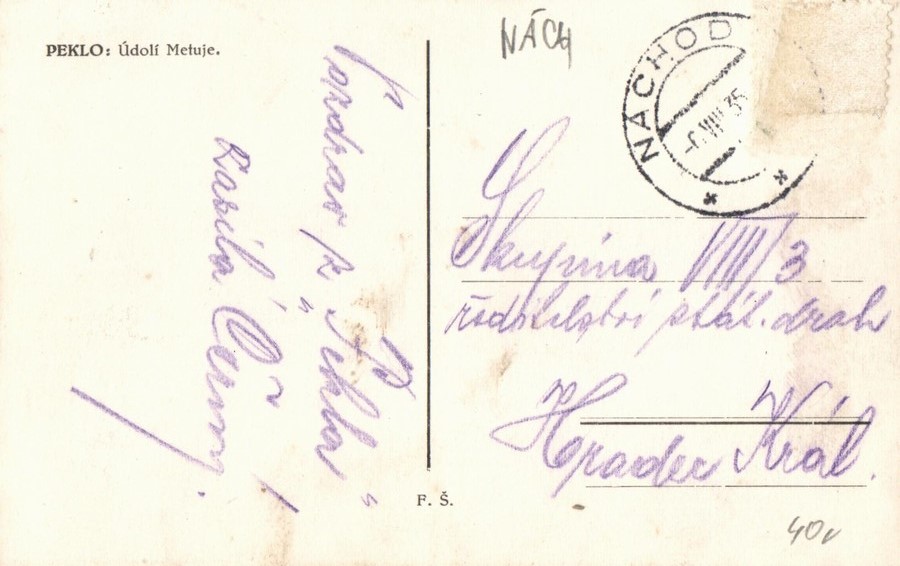 PEKLO: Údolí Metuje.
Pozdrav z
"Pekla"
zasílá Černý.
NÁCH
NÁCHOD
-6.VIII.35
Skupina VIII/3
ředitelství stát. drah
Hradec Král.
F. Š.
40,